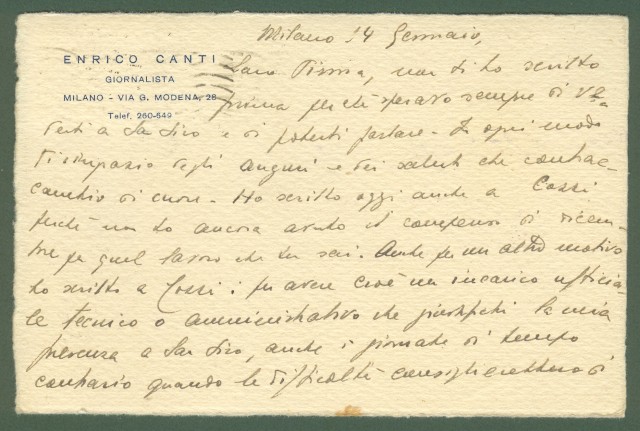 Milano 14 Gennaio,
ENRICO CANTI
GIORNALISTA
MILANO - VIA G. MODENA, 28
Telef. 260-549
Caro Pinna, non ti ho scritto
prima perché speravo sempre di ve-
derti a San Siro e di poterti parlare - In ogni modo
ti ringrazio degli auguri e dei saluti che contrac-
cambio di cuore - Ho scritto oggi anche a Cozzi
perché non ho ancora avuto il compenso di dicem-
bre per quel lavoro che tu sai. Anche per un altro motivo
ho scritto a Cozzi: per avere cioè un incarico ufficia-
le tecnico o amministrativo che giustifichi la mia
presenza a San Siro, anche in giornate di tempo
contrario quando le difficoltà consiglierebbero di